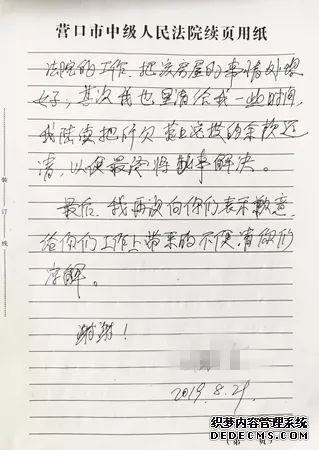 营口市中级人民法院续页用纸
法院的工作,把该房屋的事情处理
好,其次我也望请给我一些时间,
我陆续把所欠营上院的余款还
清,以便最终将此事解决。
最后,我再次向你们表示歉意,
给你们工作上带来的不便,请你们
谅解。
谢谢!
2019.8.29
装订线
(第 页)
织梦内容管理系统
DEDECMS.COM